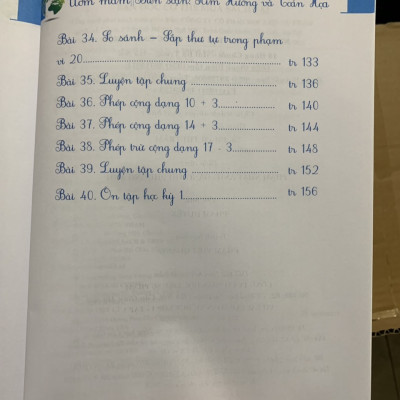 Ươm mầm Biên soạn: Kim Hương và Toán Họa
Bài 34. So sánh – Sắp thứ tự trong phạm
vi 20 tr 133
Bài 35. Luyện tập chung tr 136
Bài 36. Phép cộng dạng 10 + 3 tr 140
Bài 37. Phép cộng dạng 14 + 3 tr 144
Bài 38. Phép trừ cộng dạng 17 - 3 tr 148
Bài 39. Luyện tập chung tr 152
Bài 40. Ôn tập học kỳ 1 tr 156